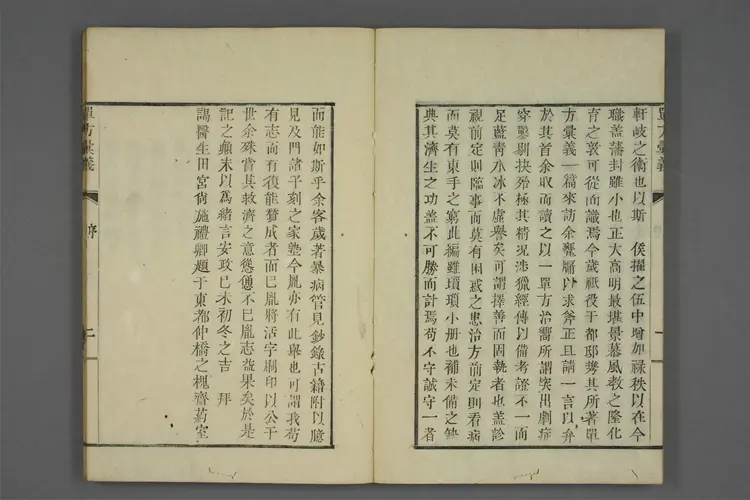 軒岐之術也以斯 侯擢之伍中增加祿秩以在今
職盖藩封雖小也正大高明最堪景慕風教之隆化
育之衷可從而識焉今歲祗役于都邸齎其所著單
方彙義一篇來訪余鬻屬以求斧正且請一言以弁
於其首余取而讀之以一單方治嚮所謂突出劇症
穿鑿剔抉殆極其精況涉獵經傳以備考證不一而
足藍青氷冰不虛譽矣可謂擇善而固執者也盖診
視前定則臨事而莫有困惑之患治方前定則看病
而莫有束手之窮此編雖瑣瑣小册也補未備之缺
典其濟生之功盖不可勝而計焉苟不守誠守一者
而能如斯乎余客歲著暴病管見鈔錄古籍附以臆
見及門諸子刻之家塾今胤亦有此舉也可謂我苟
有志而有復能贊成者而已胤將活字刷印以公于
世余殊嘗其救濟之意慫慂不已胤志益果矣於是
記之顛末以爲緒言安政己未初冬之吉 拜
謁醫生田宮尚施禮卿題于東都仲橋之槐齋葯室
單方彙義
序
一
單方彙義
序
二